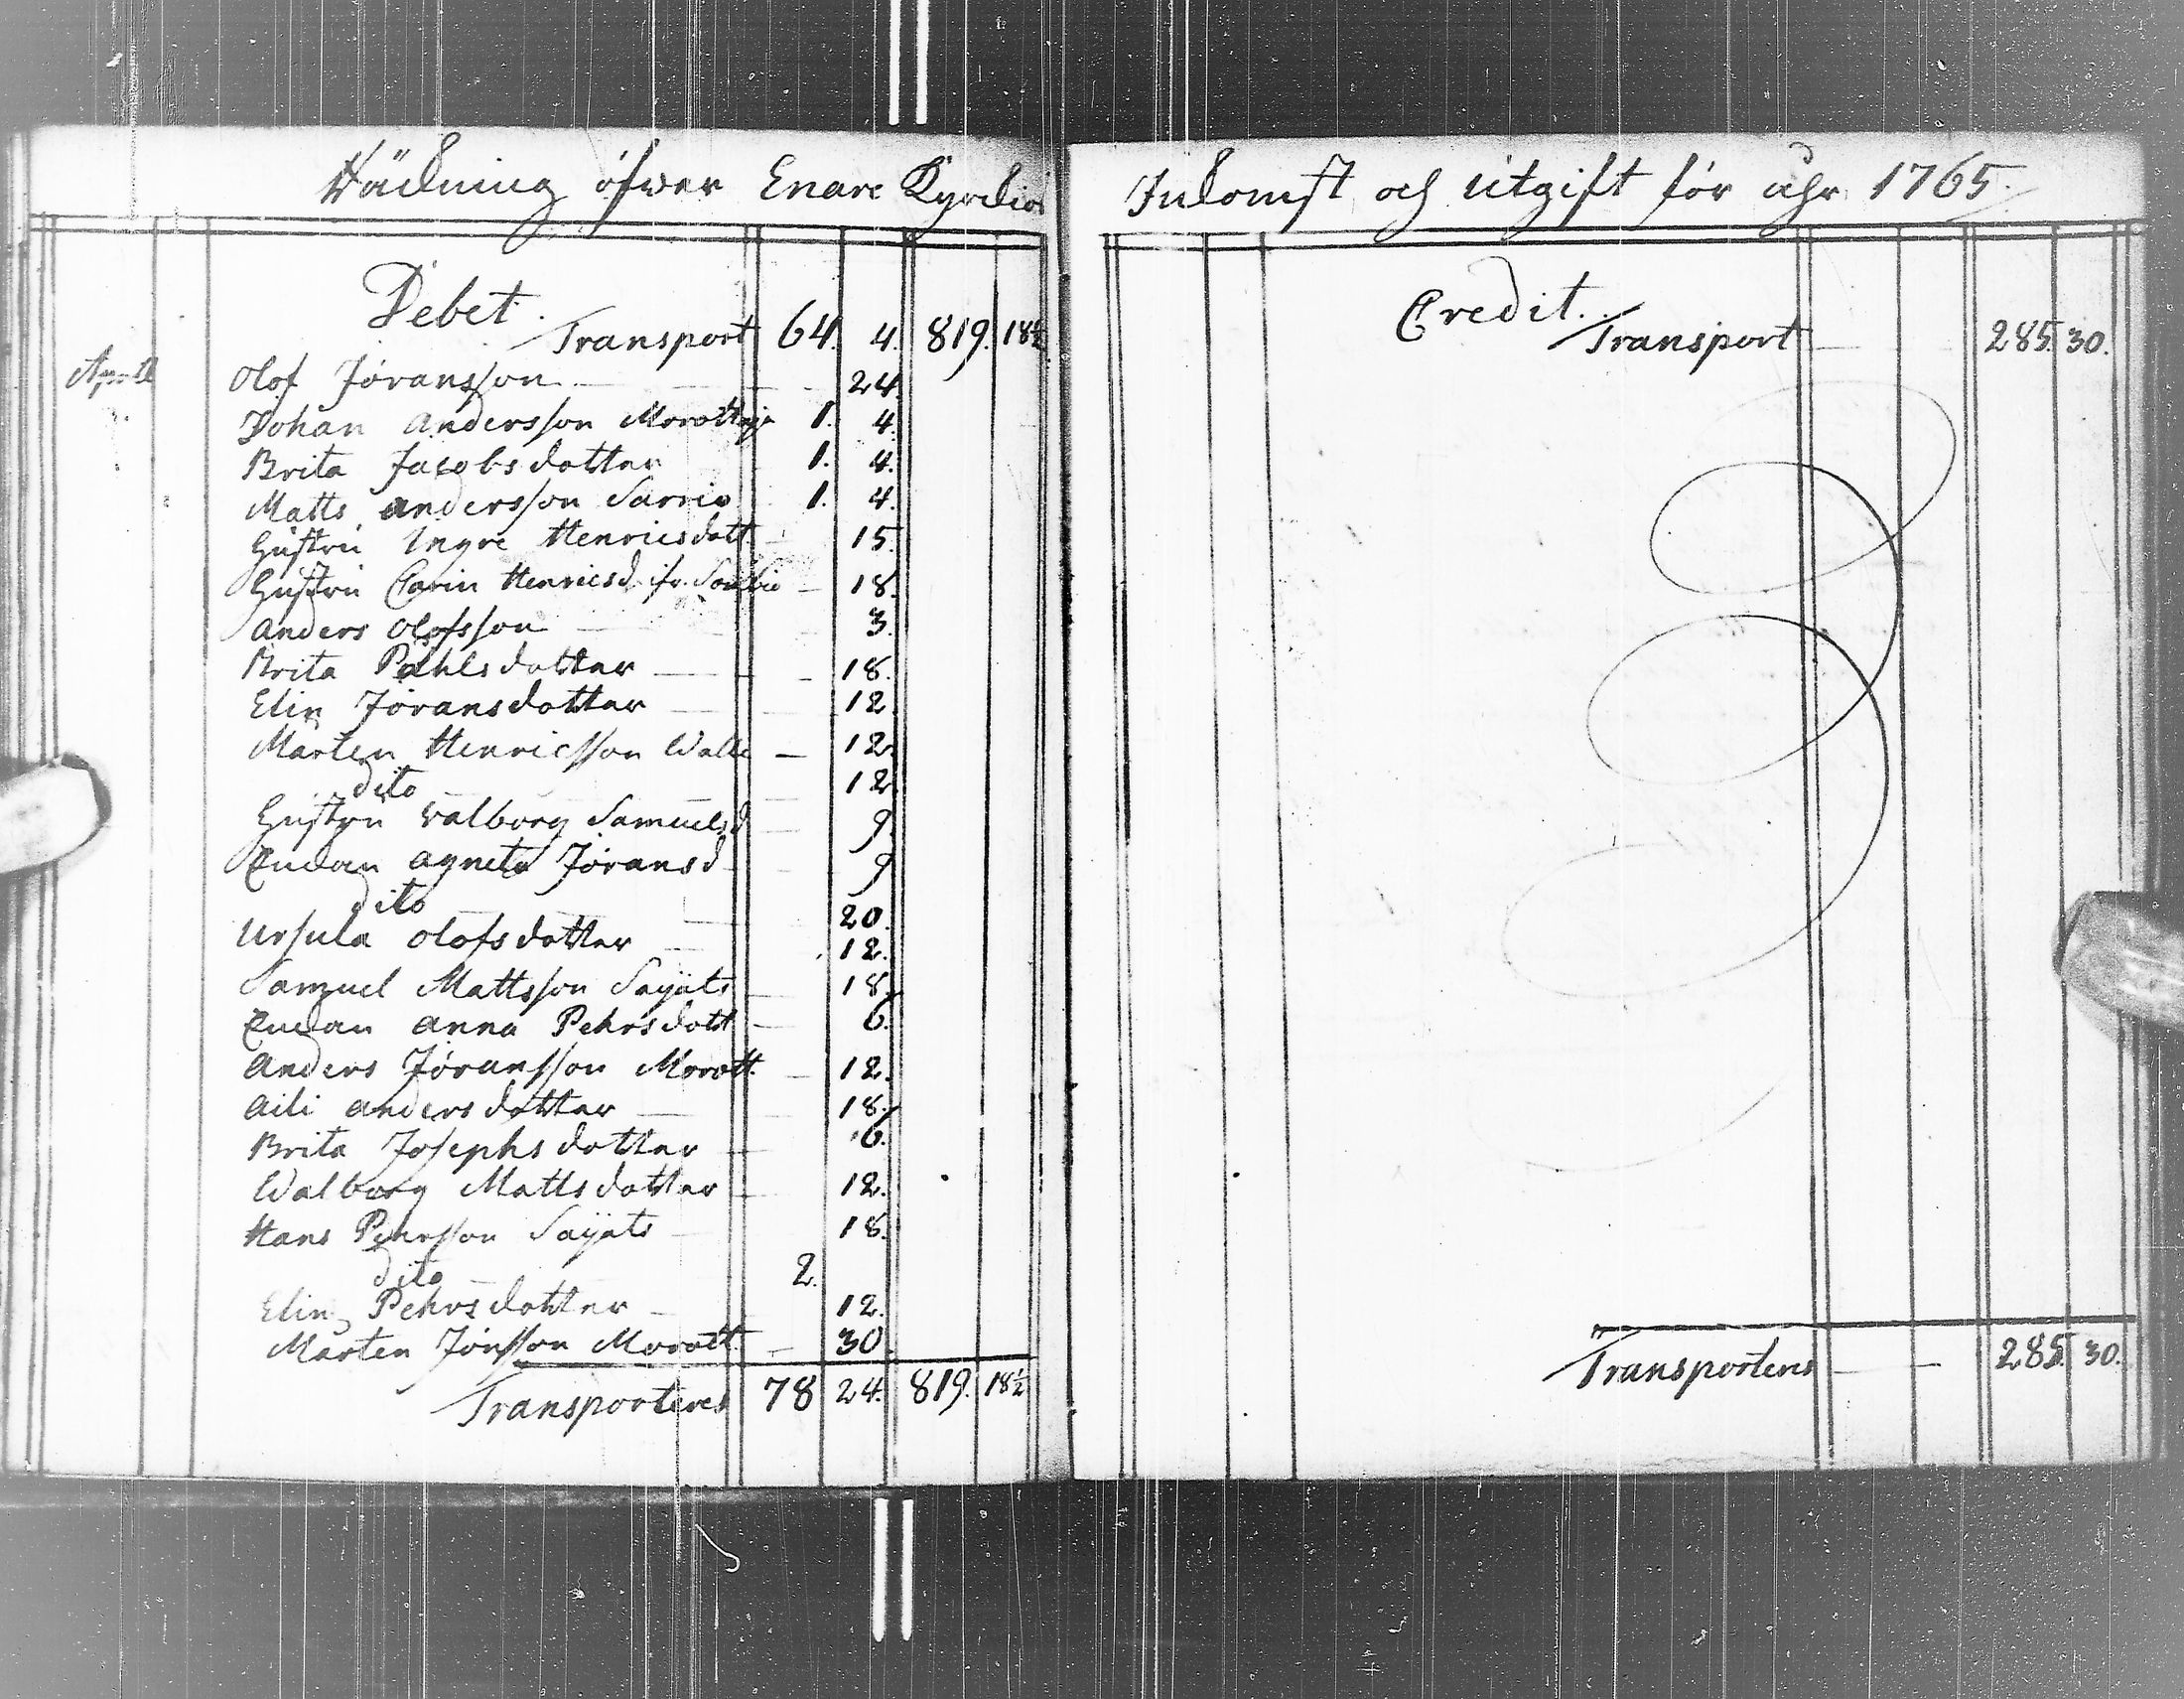 Räckning öfwer Enare Kyrckios
Debet.
Transport 64. 4. 819. 18½
Aprill Olof Joransson 24.
Johan Andersson Morottaja 1. 4.
Brita Jacobsdotter 1. 4.
Matts Andersson Sarrio 1. 4.
Hustru Ingre Henricsdott 15.
Hustru Carin Henricsd. 18.
Anders Olofsson 3.
Brita Påhlsdotter 18.
Elin Joransdotter 12.
Mårten Henricsson Walle 12.
dito 12.
Hustru Walborg Samuelsd 9.
Enckan Agneta Joransd 9
dito 20.
Ursula Olofsdotter 12.
Samuel Mattsson Sayats 18.
Enckan Anna Pehrsdott 6.
Anders Joransson Morott. 12.
Aili Andersdotter 18.
Brita Josephsdotter 6.
Walborg Mattsdotter 12.
Hans Pehrsson Sayats 18.
dito 2.
Elin Pehrsdotter 12.
Mårten Jönsson Morott. 30.
Transporteres 78 24. 819. 18½
Inkomst och Utgift för åhr 1765.
Credit.
Transport 285. 30.
Transporteres 285. 30.